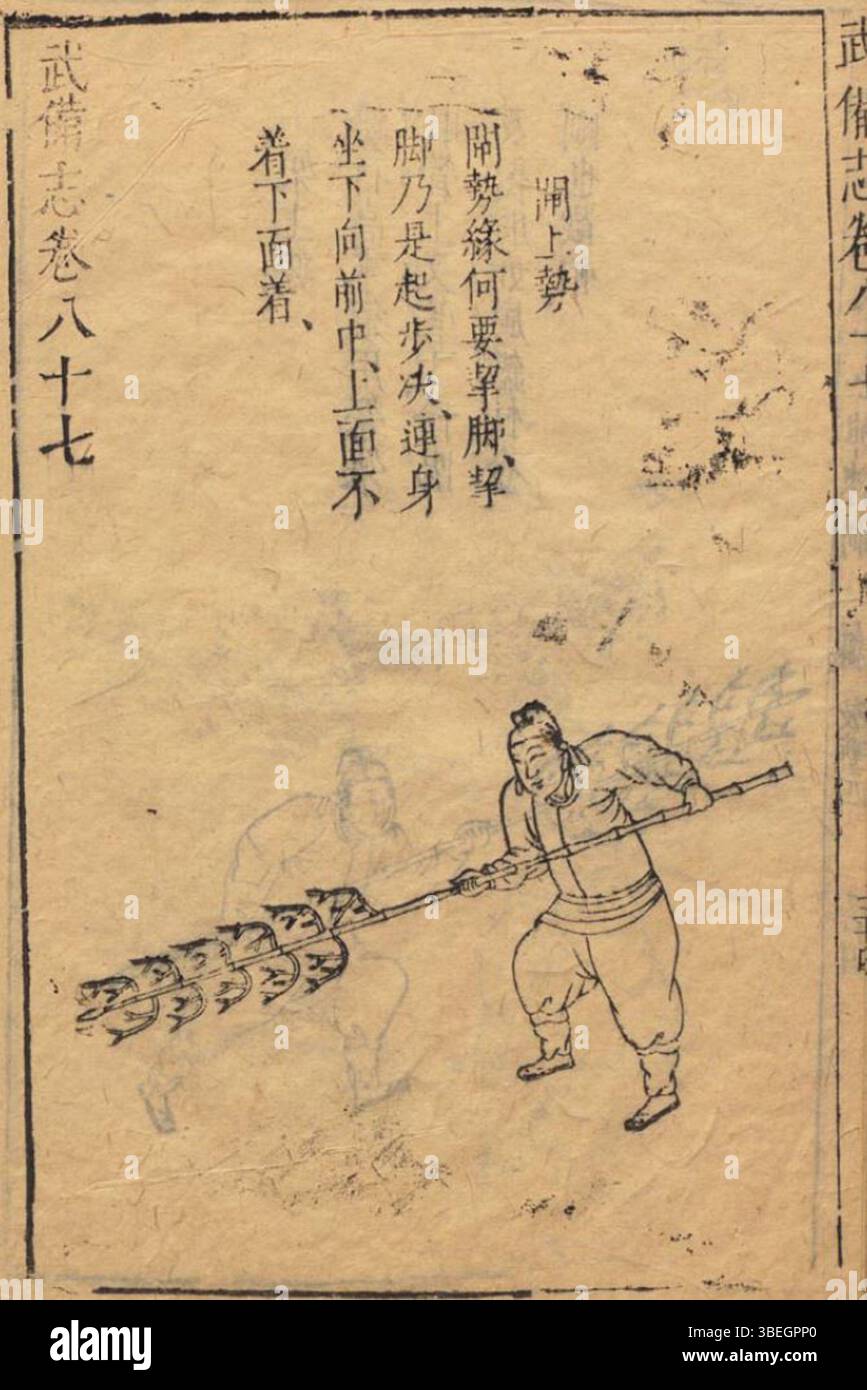 武備志卷八十
閘上勢
閘勢緣何要挈脚、挈
脚乃是起步决、連身
坐下向前中、上面不
着下面着、
武備志卷八十七
alamy
Image ID: 3BEGPP0
www.alamy.com